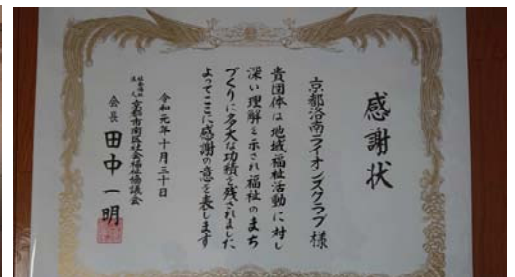 感謝状
京都洛南ライオンズクラブ様
貴団体は地域福祉活動に対し
深い理解を示され福祉のまち
づくりに多大な功績を残されました
よってここに感謝の意を表します
令和元年十月三十日
社会福祉法人 京都市南区社会福祉協議会
会長 田中一明